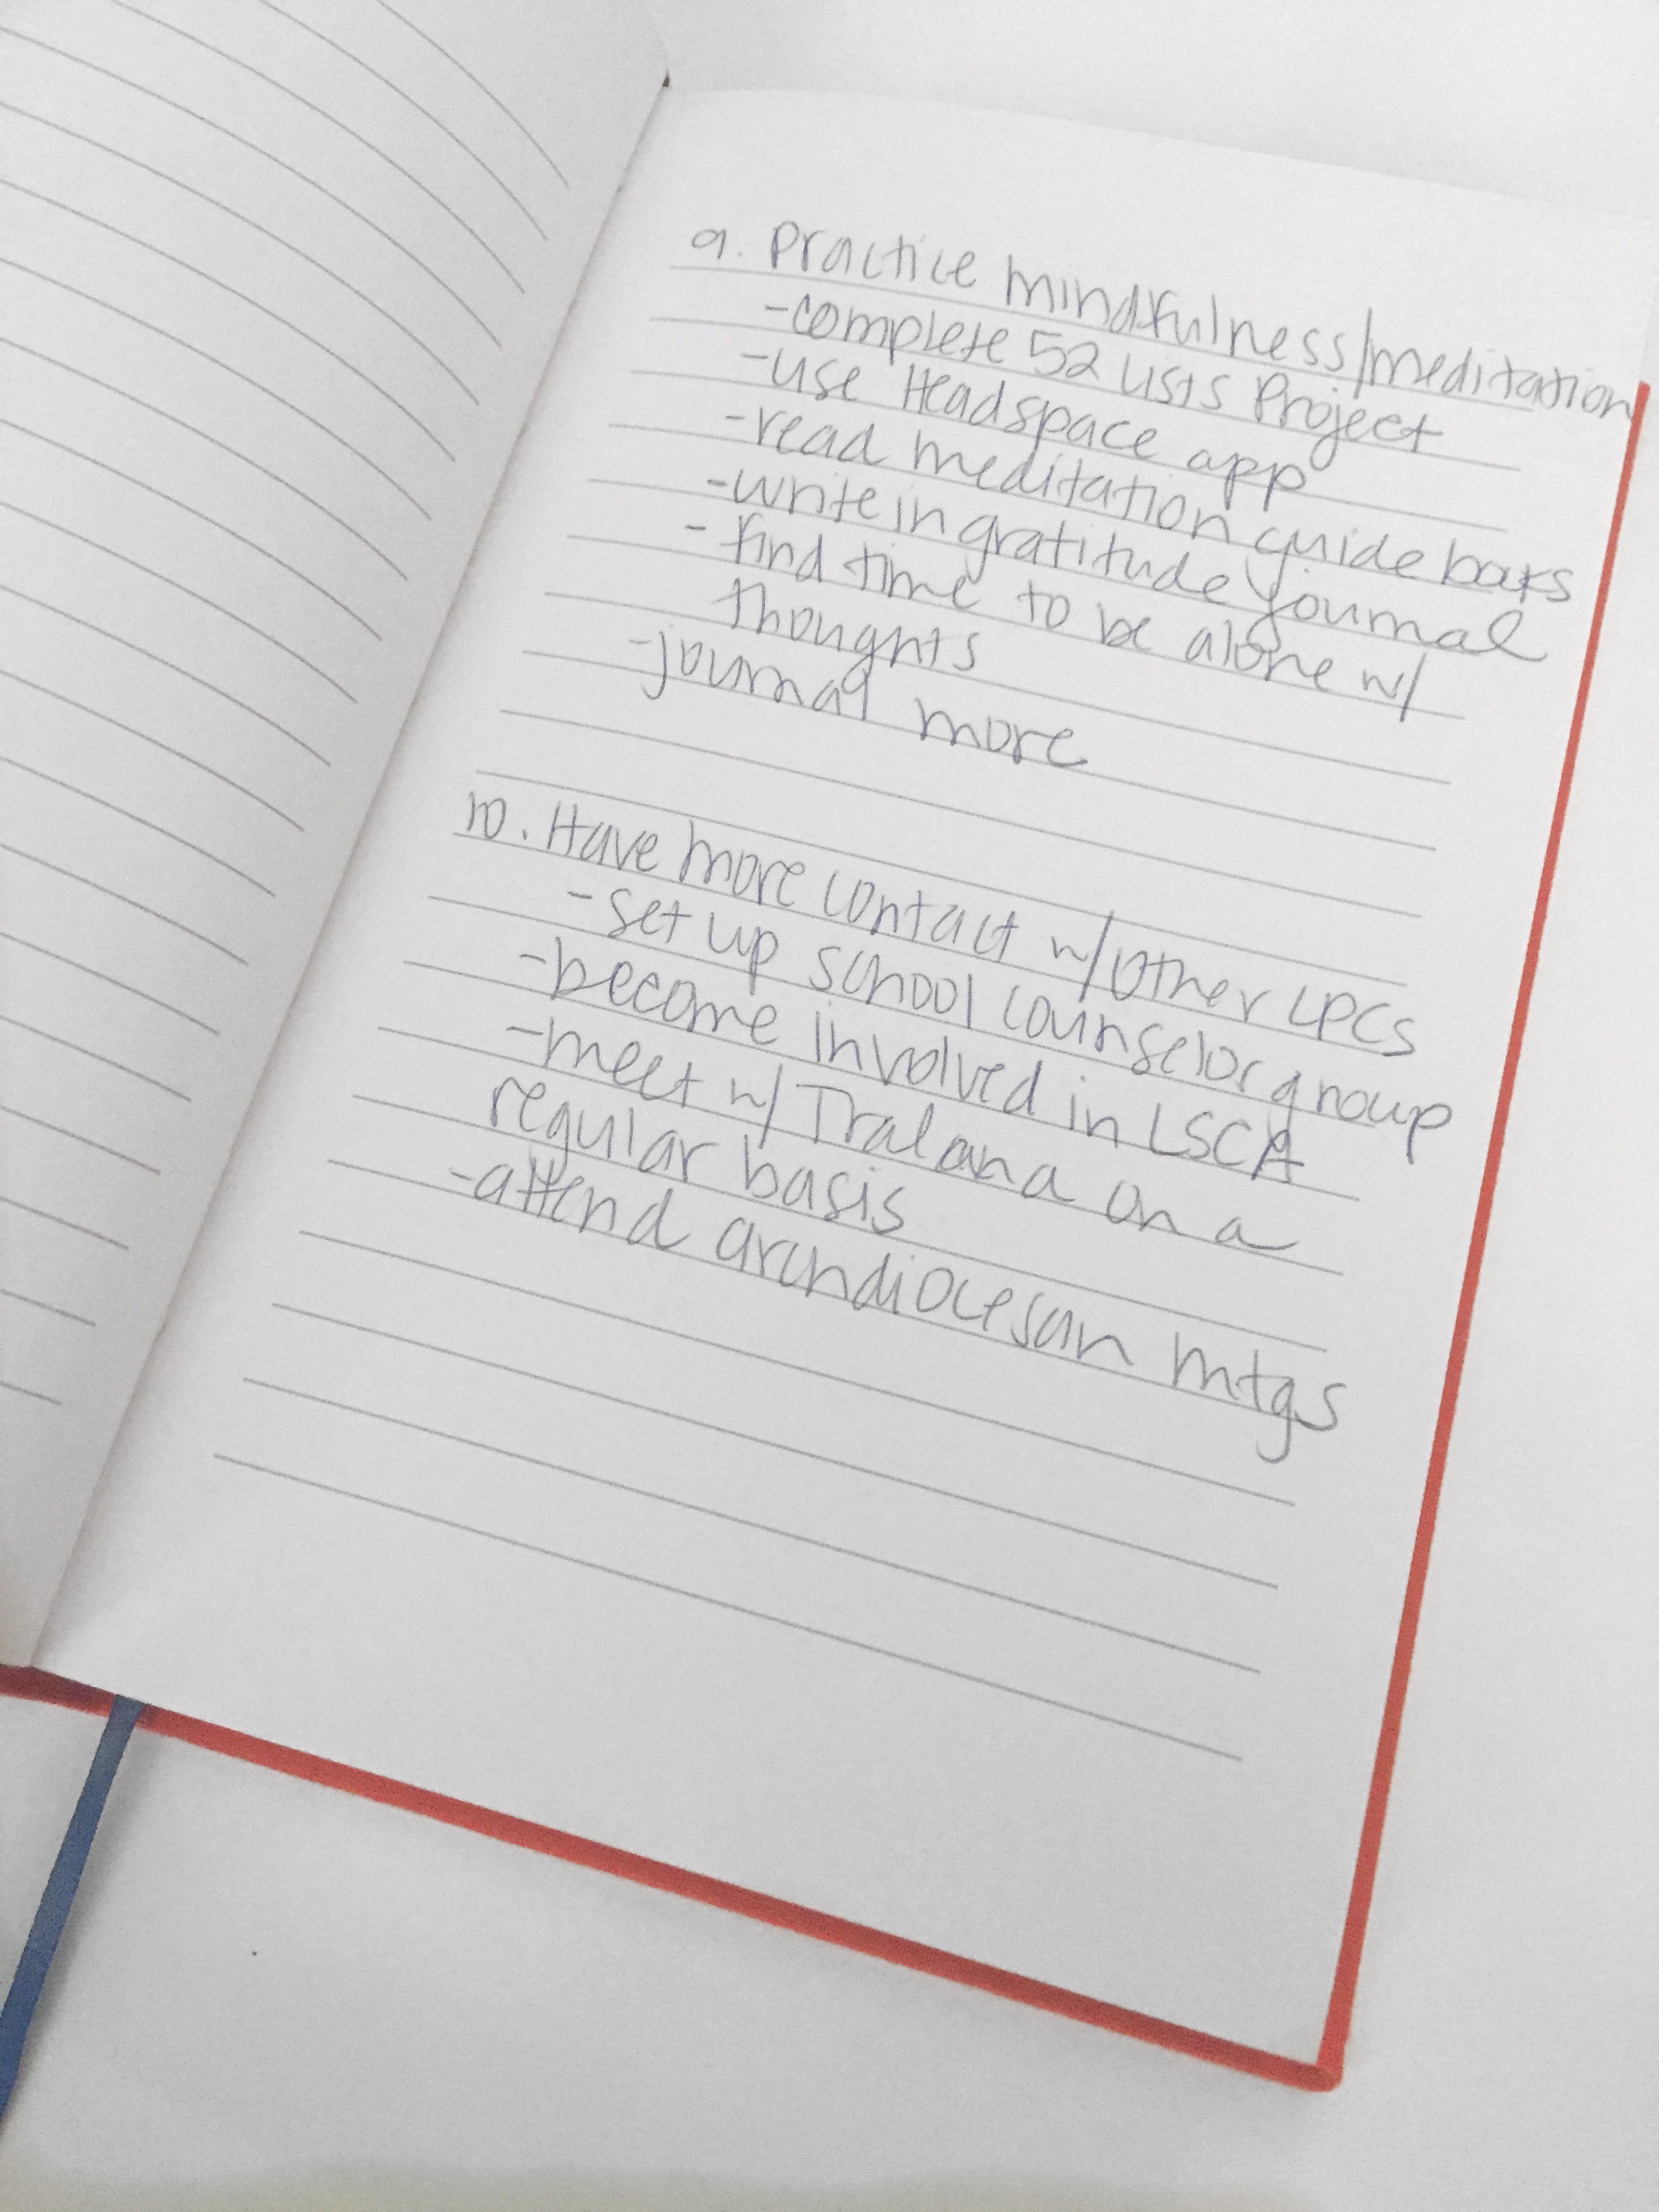 9. Practice mindfulness/meditation
-complete 52 Lists Project
-use Headspace app
-read meditation guide
-write in gratitude journal
- find time to be alone w/
thoughts
-journal more
10. Have more contact w/other LPCs
-set up school counselor group
-become involved in LSCA
-meet w/ Tralana on a
regular basis
-attend archdiocesan mtgs